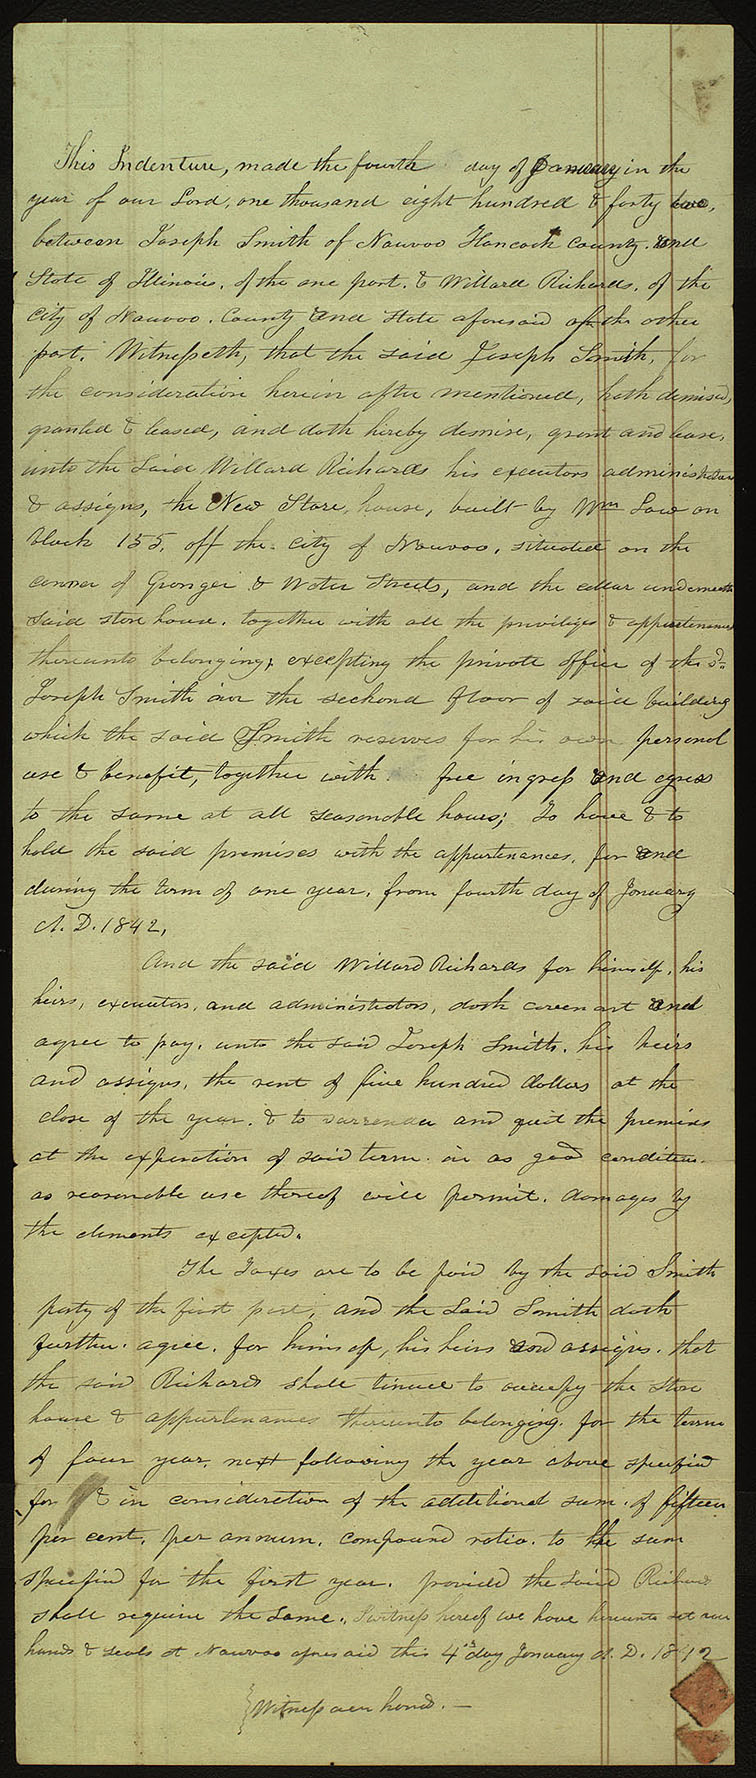 This Indenture, made the fourth day of January in the
year of our Lord, one thousand eight hundred & forty two,
between Joseph Smith of Nauvoo Hancock County. and
State of Illinois. of the one part. & Willard Richards. of the
City of Nauvoo. County and State aforesaid of the other
part. Witnesseth, that the said Joseph Smith, for
the consideration herein after mentioned, hath demised,
granted & leased, and doth hereby demise, grant and lease,
unto the said Willard Richards his executors administrators
& assigns, the New Store, house, built by Wm Law on
block 155. off the city of Nauvoo. situated on the
corner of Granger & Water Streets, and the cellar underneath
said store house. together with all the privileges & appurtenances
thereunto belonging; excepting the private office of the sd.
Joseph Smith on the sechond floor of said building
which the said Smith reserves for his own personal
use & benefit, together with free ingress and egress
to the same at all seasonable hours; To have & to
hold the said premises with the appurtenances, for and
during the term of one year, from fourth day of January
A. D. 1842,
And the said Willard Richards for himself, his
heirs, executors, and administrators, doth covenant and
agree to pay. unto the said Joseph Smith. his heirs
and assigns, the rent of five hundred dollars at the
close of the year. & to surrender and quit the premises
at the expiration of said term. in as good condition
as reasonable use thereof will permit. damages by
the elements excepted.
The Taxes are to be paid by the said Smith
party of the first part, and the said Smith doth
further. agree. for himself, his heirs and assigns. that
the said Richards shall tinue to occupy the store
house & appurtenances thereunto belonging. for the term
of four year. next following the year above specified
for & in consideration of the additional sum. of fifteen
per cent. per annum. compound ratio. to the sum
specified for the first year. provided the said Richards
shall require the same. witness hereof we have hereunto set our
hands & seals at Nauvoo aforesaid this 4th day January A. D. 1842
Witness our hand. —